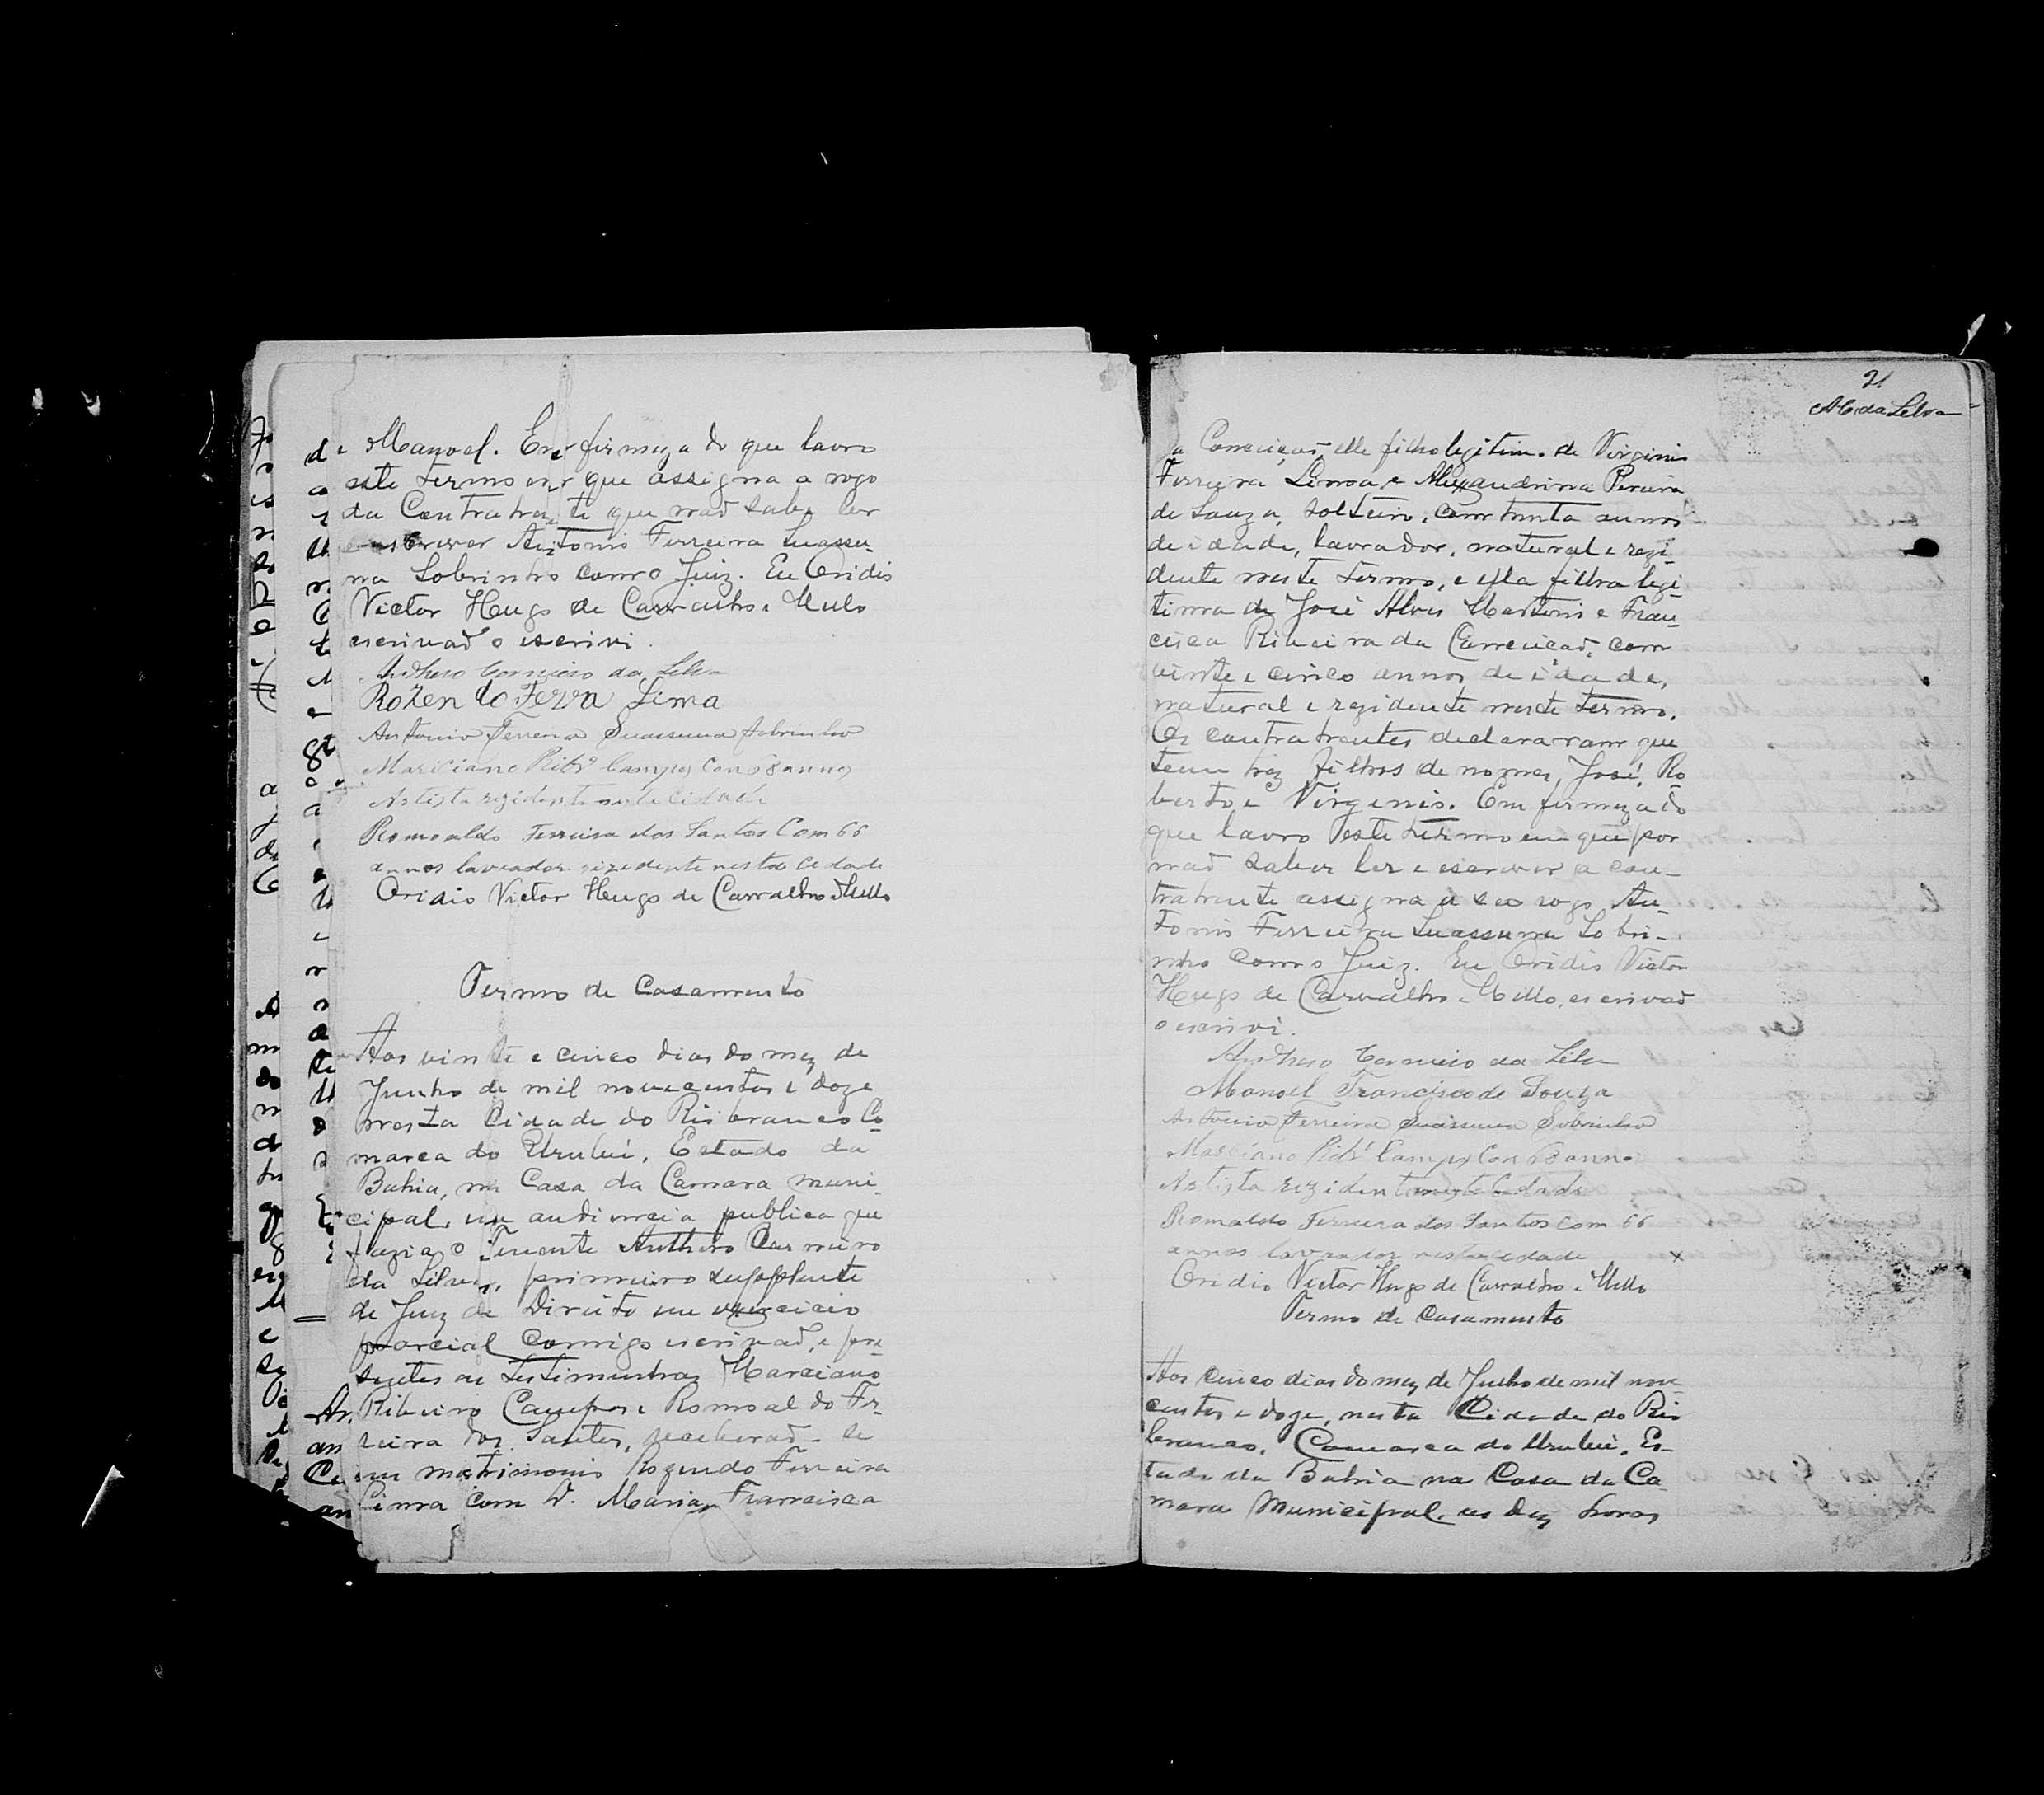 de Manoel. Em firmeza do que lavro
este termo em que assigna a rogo
da Contratante que naõ sabe ler
e escrever Antonio Ferreira Suassu-
na Sobrinho como Juiz. Eu Oridio
Victor Hugo de Carvalho e Mello
escrivaõ o escrivi.
Anthero Carneiro da Silva
Rozendo Ferra Lima
Antonio Ferreira Suassuna Sobrinho
Marciano Ribrº Campos Con 68 annos
Artista rezidente nesta Cidade
Romoaldo Ferreira dos Santos Com 66
annos lavrador rizedente nesta cidade
Oridio Victor Hugo de Carvalho e Mello
Termo de Casamento
Aos vinte e cinco dias do mez de
Junho de mil novecentos e doze
nesta Cidade do Rio branco Co-
marca do Urubú, Estado da
Bahia, na Casa da Camara muni-
cipal, em audiencia publica que
fazia o Tenente Anthero Carneiro
da Silva, primeiro supplente
de Juiz de Direito em exercicio
parcial comigo escrivaõ, e pre-
sentes as testimunhas Marciano
Ribeiro Campos e Romoaldo Fer-
reira dos Santos, receberaõ-se
em matrimonio Rozendo Ferreira
Lima com D. Maria Francisca
21
ACdaSilva
da Conceiçaõ, elle filho legitimo de Virginio
Ferreira Lima e Alexandrina Pereira
de Souza, solteiro, com trinta annos
de idade, lavrador, natural e rezi-
dente neste termo, e ella filha legi-
tima de José Alves Martins e Fran-
cisca Ribeira da Conceiçaõ, com
vinte e cinco annos de idade,
natural e rezidente neste termo.
Os contratrentes declararam que
teem trez filhos de nomes, José, Ro
berto e Virginio. Em firmeza do
que lavro este termo em que por
naõ saber ler e escrever a con-
tratrente assigna a seo rogo An-
tonio Ferreira Suassuna Sobri-
nho como Juiz. Eu Oridio Victor
Hugo de Carvalho e Mello, escrivaõ
o escrivi.
Anthero Carneiro da Silva
Manoel Francisco de Souza
Antonio Ferreira Suassuna Sobrinho
Marciano Ribrº Campos Con 68 anno
Artista rezidente nesta Cidade
Romaldo Ferreira dos Santos com 66
annos lavrador nesta cidade x
Oridio Victor Hugo de Carvalho e Mello
Termo de Casamento
Aos cinco dias do mez de Julho de mil nove-
centos e doze, nesta Cidade do Rio
branco, Comarca do Urubú, Es-
tado da Bahia na Casa da Ca-
mara Municipal, as dez horas